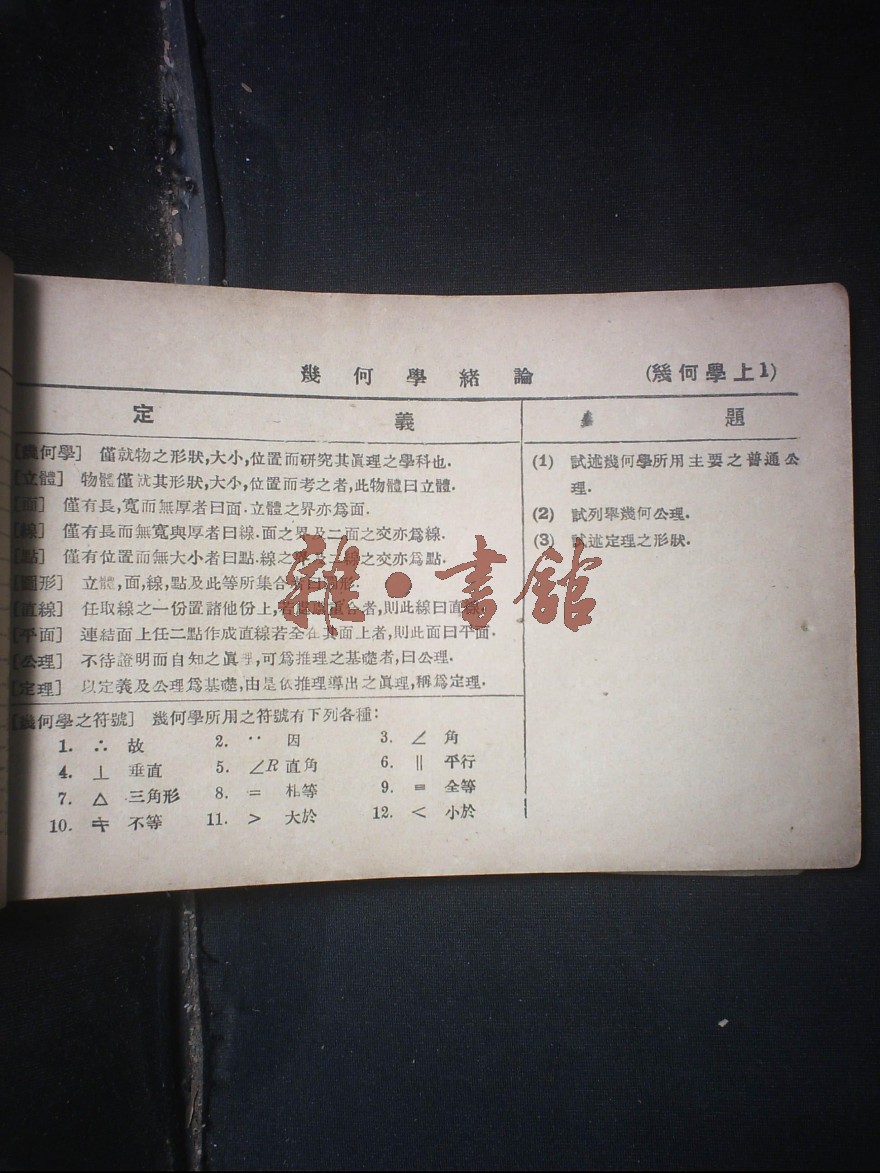 幾何學緒論
(幾何學上1)
定義
題
[幾何學] 僅就物之形狀,大小,位置而研究其眞理之學科也.
[立體] 物體僅就其形狀,大小,位置而考之者,此物體曰立體.
[面] 僅有長,寬而無厚者曰面.立體之界亦爲面.
[線] 僅有長而無寬與厚者曰線.面之界及二面之交亦爲線.
[點] 僅有位置而無大小者曰點.線之 線之交亦爲點.
[圖形] 立體,面,線,點及此等所集合 曰圖形.
[直線] 任取線之一份置諸他份上,若 重合者,則此線曰直線.
[平面] 連結面上任二點作成直線若全在其面上者,則此面曰平面.
[公理] 不待證明而自知之眞理,可爲推理之基礎者,曰公理.
[定理] 以定義及公理爲基礎,由是依推理導出之眞理,稱爲定理.
[幾何學之符號] 幾何學所用之符號有下列各種:
1. ∴ 故 2. ∵ 因 3. ∠ 角
4. ⊥ 垂直 5. ∠R 直角 6. ∥ 平行
7. △ 三角形 8. = 相等 9. ≡ 全等
10. ≠ 不等 11. > 大於 12. < 小於
(1) 試述幾何學所用主要之普通公
理.
(2) 試列舉幾何公理.
(3) 試述定理之形狀.
雜·書館